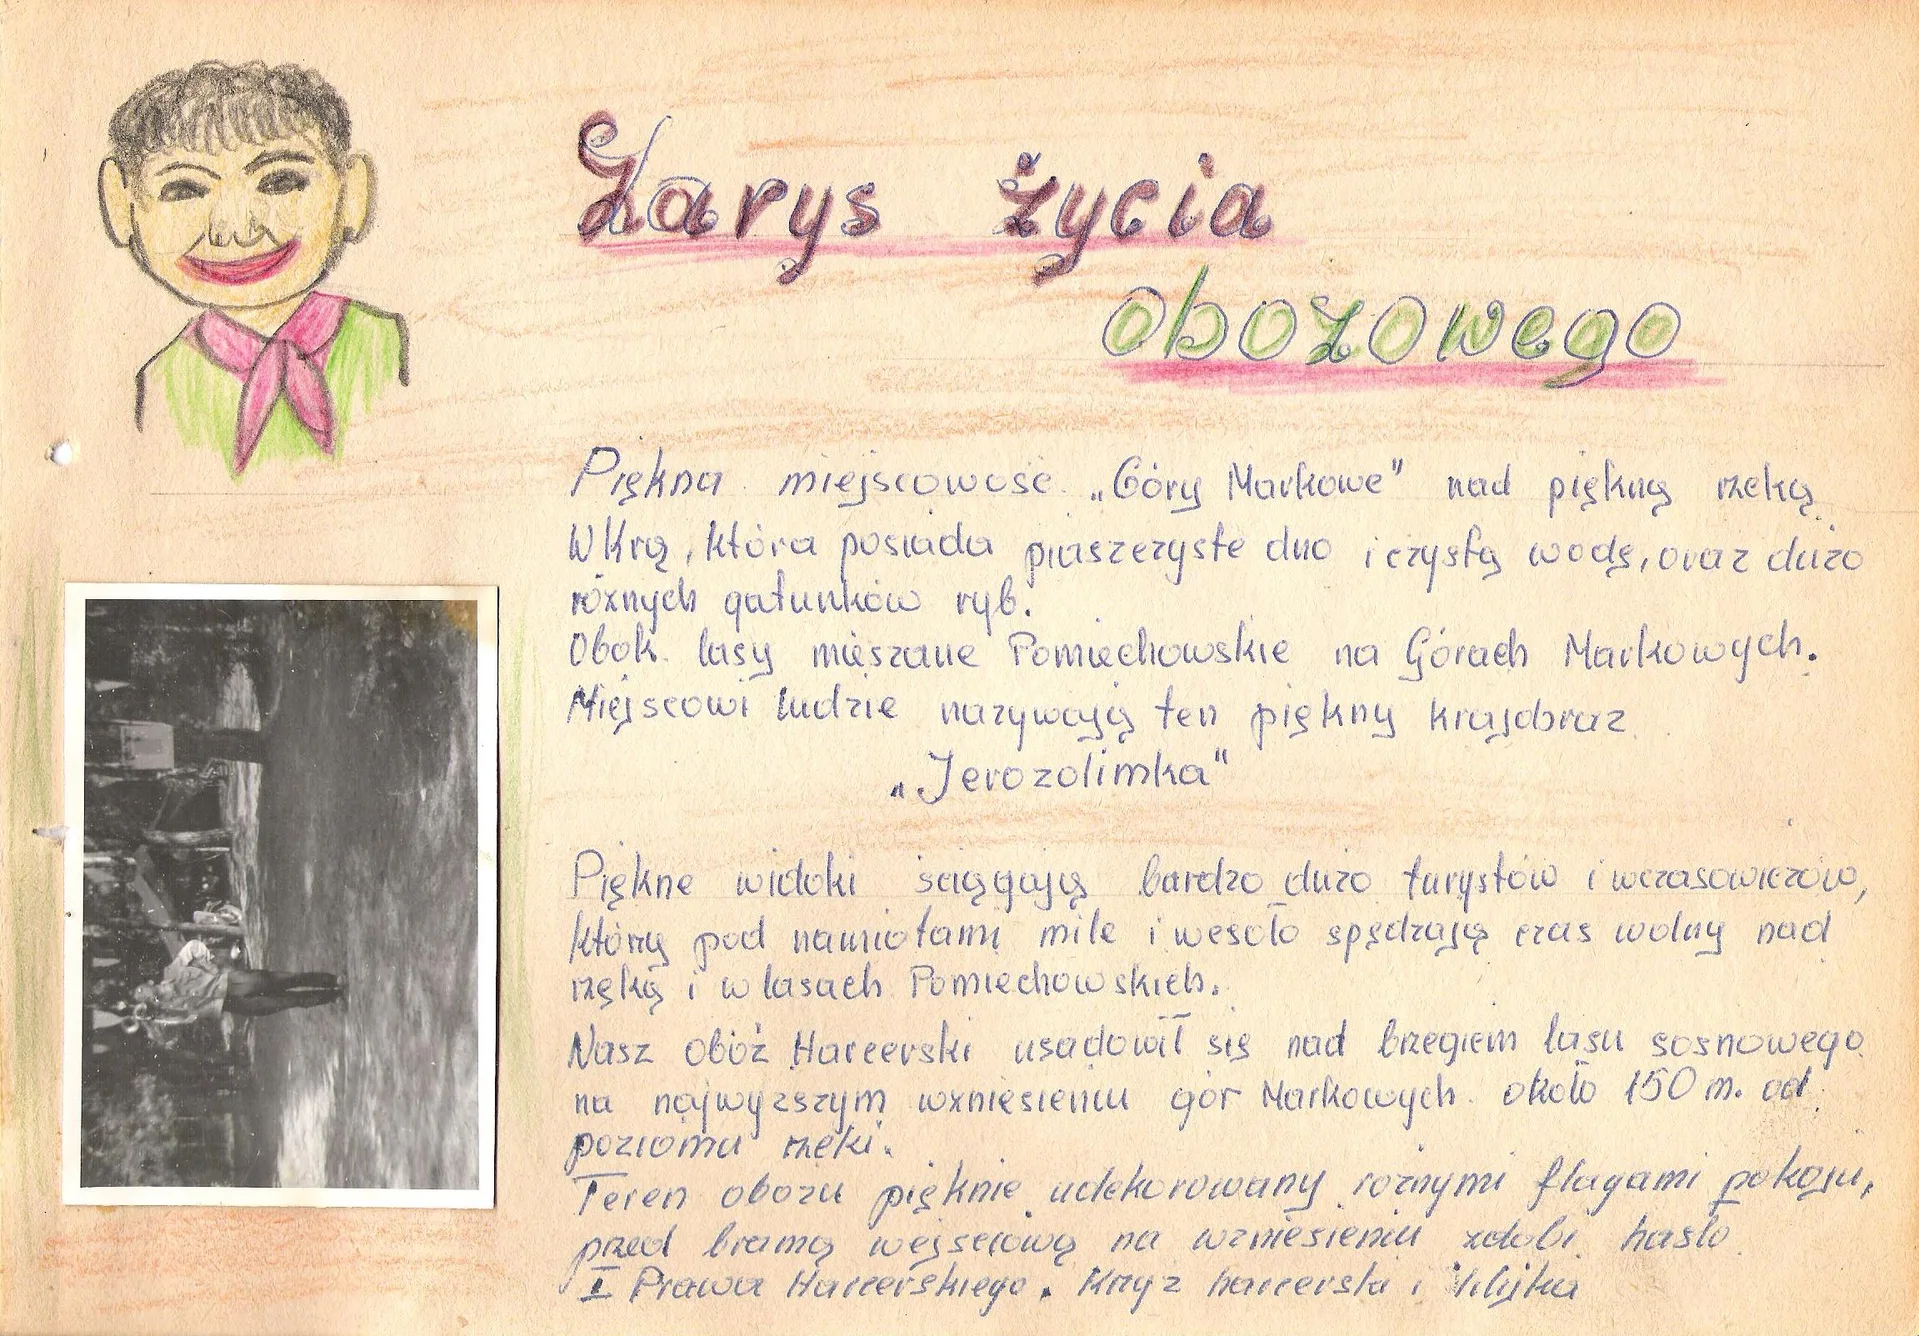 Zarys życia
obozowego
Piękna miejscowość „Góry Markowe" nad piękną rzeką
Wkrą, która posiada piaszczyste dno i czystą wodę, oraz dużo
różnych gatunków ryb.
Obok lasy mieszane Pomiechowskie na Górach Markowych.
Miejscowi ludzie nazywają ten piękny krajobraz
„Jerozolimka"
Piękne widoki ściągają bardzo dużo turystów i wczasowiczów,
którzy pod namiotami mile i wesoło spędzają czas wolny nad
rzęką i w lasach Pomiechowskich.
Nasz obóz Harcerski usadowił się nad brzegiem lasu sosnowego
na najwyższym wzniesieniu gór Markowych około 150 m. od
poziomu rzeki.
Teren obozu pięknie udekorowany różnymi flagami pokoju,
przed bramą wejściową na wzniesieniu zdobi hasło
I Prawa Harcerskiego. Krzyż harcerski i lilijka